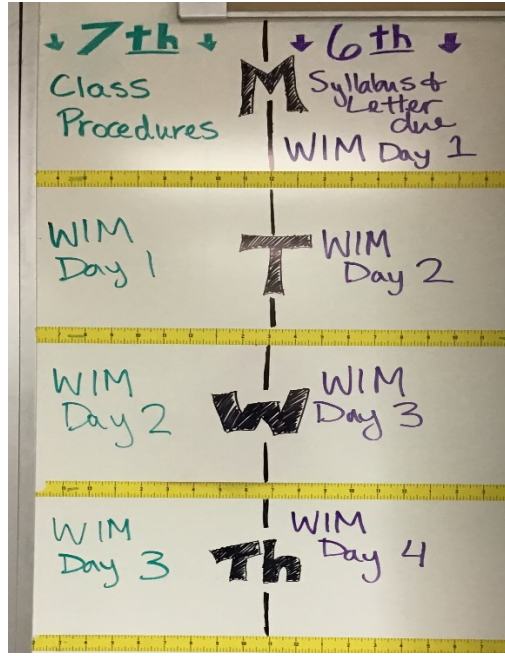 7th
6th
M
Class
Procedures
Syllabus &
Letter
due
WIM Day 1
T
WIM
Day 1
WIM
Day 2
W
WIM
Day 2
WIM
Day 3
Th
WIM
Day 3
WIM
Day 4